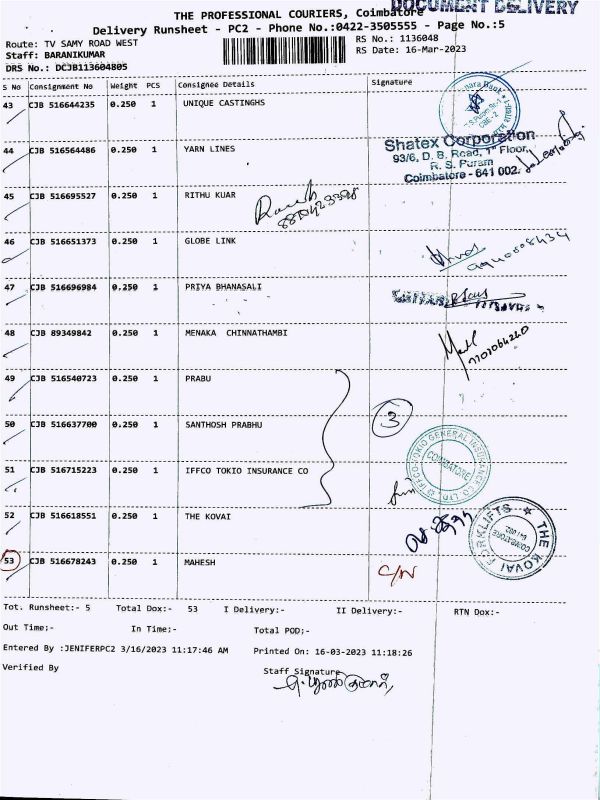 DOCUMENT DELIVERY
THE PROFESSIONAL COURIERS, Coimbatore
Delivery Runsheet - PC2 - Phone No.:0422-3505555 - Page No.:5
Route: TV SAMY ROAD WEST
RS No.: 1136048
Staff: BARANIKUMAR
RS Date: 16-Mar-2023
DRS No.: DCJB113604805
S No Consignment No Weight PCS Consignee Details Signature
43 CJB 516644235 0.250 1 UNIQUE CASTINGHS
Shatex Corporation
93/6, D. B. Road, 1st Floor,
R. S. Puram
Coimbatore - 641 002.
44 CJB 516564486 0.250 1 YARN LINES
45 CJB 516695527 0.250 1 RITHU KUAR
46 CJB 516651373 0.250 1 GLOBE LINK
47 CJB 516696984 0.250 1 PRIYA BHANASALI
48 CJB 89349842 0.250 1 MENAKA CHINNATHAMBI
49 CJB 516540723 0.250 1 PRABU
50 CJB 516637700 0.250 1 SANTHOSH PRABHU
3
51 CJB 516715223 0.250 1 IFFCO TOKIO INSURANCE CO
IFFCO-TOKIO GENERAL INSURANCE CO. LTD.
COIMBATORE
52 CJB 516618551 0.250 1 THE KOVAI
THE KOVAI FORKLIFTS
COIMBATORE
53 CJB 516678243 0.250 1 MAHESH
C/N
Tot. Runsheet:- 5 Total Dox:- 53 I Delivery:- II Delivery:- RTN Dox:-
Out Time;- In Time;- Total POD;-
Entered By :JENIFERPC2 3/16/2023 11:17:46 AM Printed On: 16-03-2023 11:18:26
Verified By Staff Signature